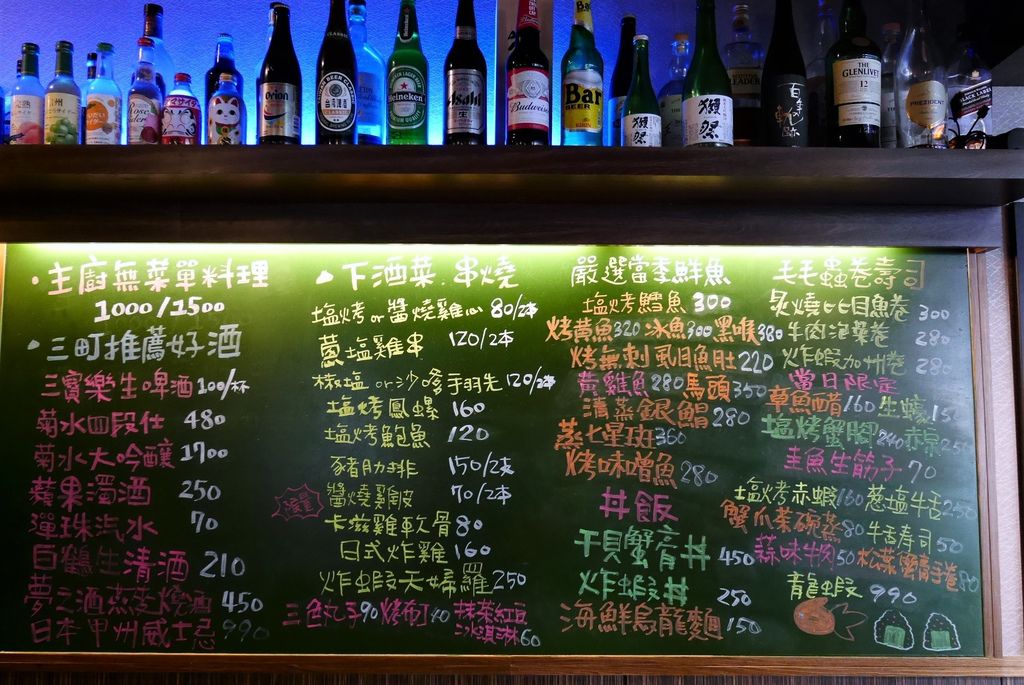 Orion
Heineken
Asahi
Budweiser
Bar
BEER
KIRIN
獺祭
獺祭
THE
GLENLIVET
12
PREZIDENT
BLACK LABEL
・主廚無菜單料理
1000/1500
・三町推薦好酒
三寶樂生啤酒 100/杯
菊水四段仕 480
菊水大吟釀 1700
蘋果濁酒 250
彈珠汽水 70
白鶴生清酒 210
450
日本甲州威士忌 990
下酒菜.串燒
塩烤or醬燒雞心 80/2本
蔥塩雞串 120/2本
椒塩or沙嗲手羽先 120/2本
塩烤鳳螺 160
塩烤鮑魚 120
豬肋排 150/2支
醬燒雞皮 70/2本
卡滋雞軟骨 80
日式炸雞 160
炸蝦天婦羅 250
三色丸子90 抹茶紅豆
冰淇淋60
嚴選當季鮮魚
塩烤鱈魚 300
烤黃魚320 冰魚300 黑喉380
烤無刺虱目魚肚 220
黃雞魚280 馬頭350
清蒸銀鯧 280
蒸七星斑 360
烤味噌魚 280
丼飯
干貝蟹膏丼 450
炸蝦丼 250
海鮮烏龍麵 150
毛毛蟲卷壽司
炙燒比目魚卷 300
牛肉泡菜卷 280
炸蝦加州卷 280
當日限定
章魚醋160 生蠔
塩烤蟹腳
生筋子 70
塩烤赤蝦160 蔥塩牛舌250
蟹爪茶碗蒸80 牛舌壽司50
蒜味牛肉50 松葉蟹膏手卷80
龍蝦 990